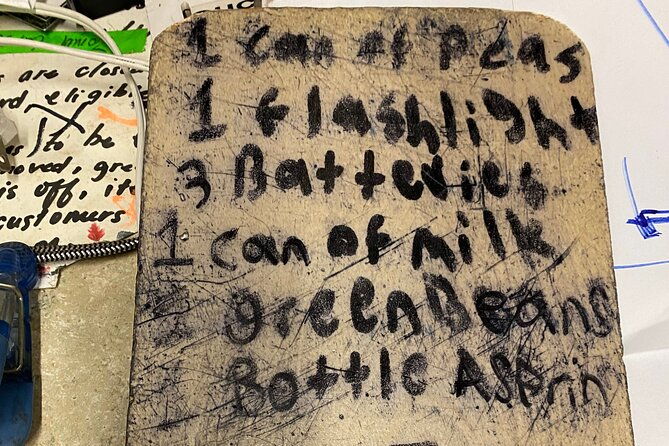 1 can of peas
1 flashlight
3 Batteries
1 can of milk
green Beans
Bottle Asprin
s are close
rd eligib
to be
moved, gre
is off, ite
customers